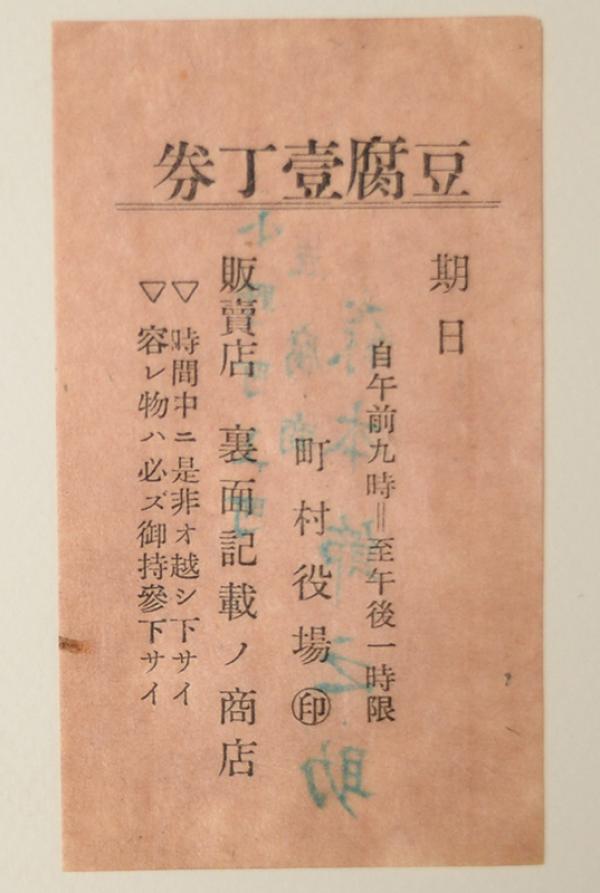 豆腐壹丁券
期日
自午前九時＝至午後一時限
町村役場㊞
販賣店 裏面記載ノ商店
▽ 時間中ニ是非オ越シ下サイ
▽ 容レ物ハ必ズ御持參下サイ